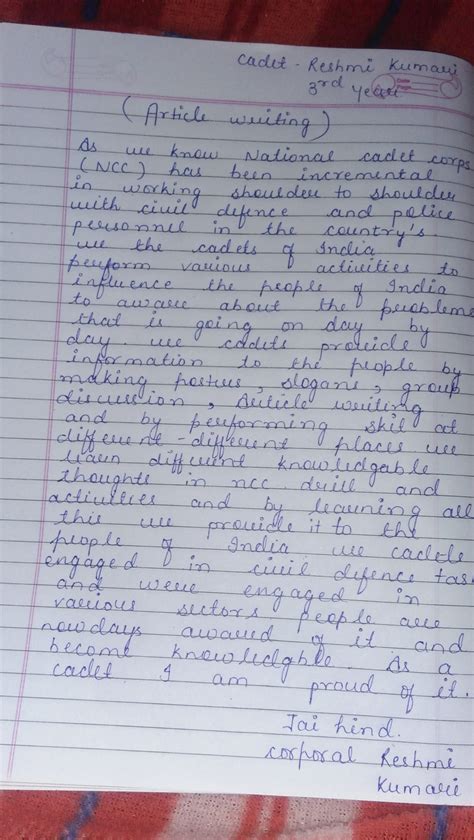 Cadet - Reshmi Kumari
3rd year
(Article writing)
As we know National cadet corps
(NCC) has been incremental
in working shoulder to shoulder
with civil defence and police
personnel in the country's.
we the cadets of India
perform various activities to
influence the people of India
to aware about the problems
that is going on day by
day. we cadets provide
information to the people by
making posters, slogans, group
discussion, Article writing
and by performing skil at
different-different places we
learn different knowledgable
thoughts in ncc drill and
activities and by learning all
this we provide it to the
people of India we cadets
engaged in civil defence tas
and were engaged in
various sectors people are
nowdays awared of it and
become knowledgble. As a
cadet I am proud of it.
Jai hind.
corporal Reshmi
Kumari